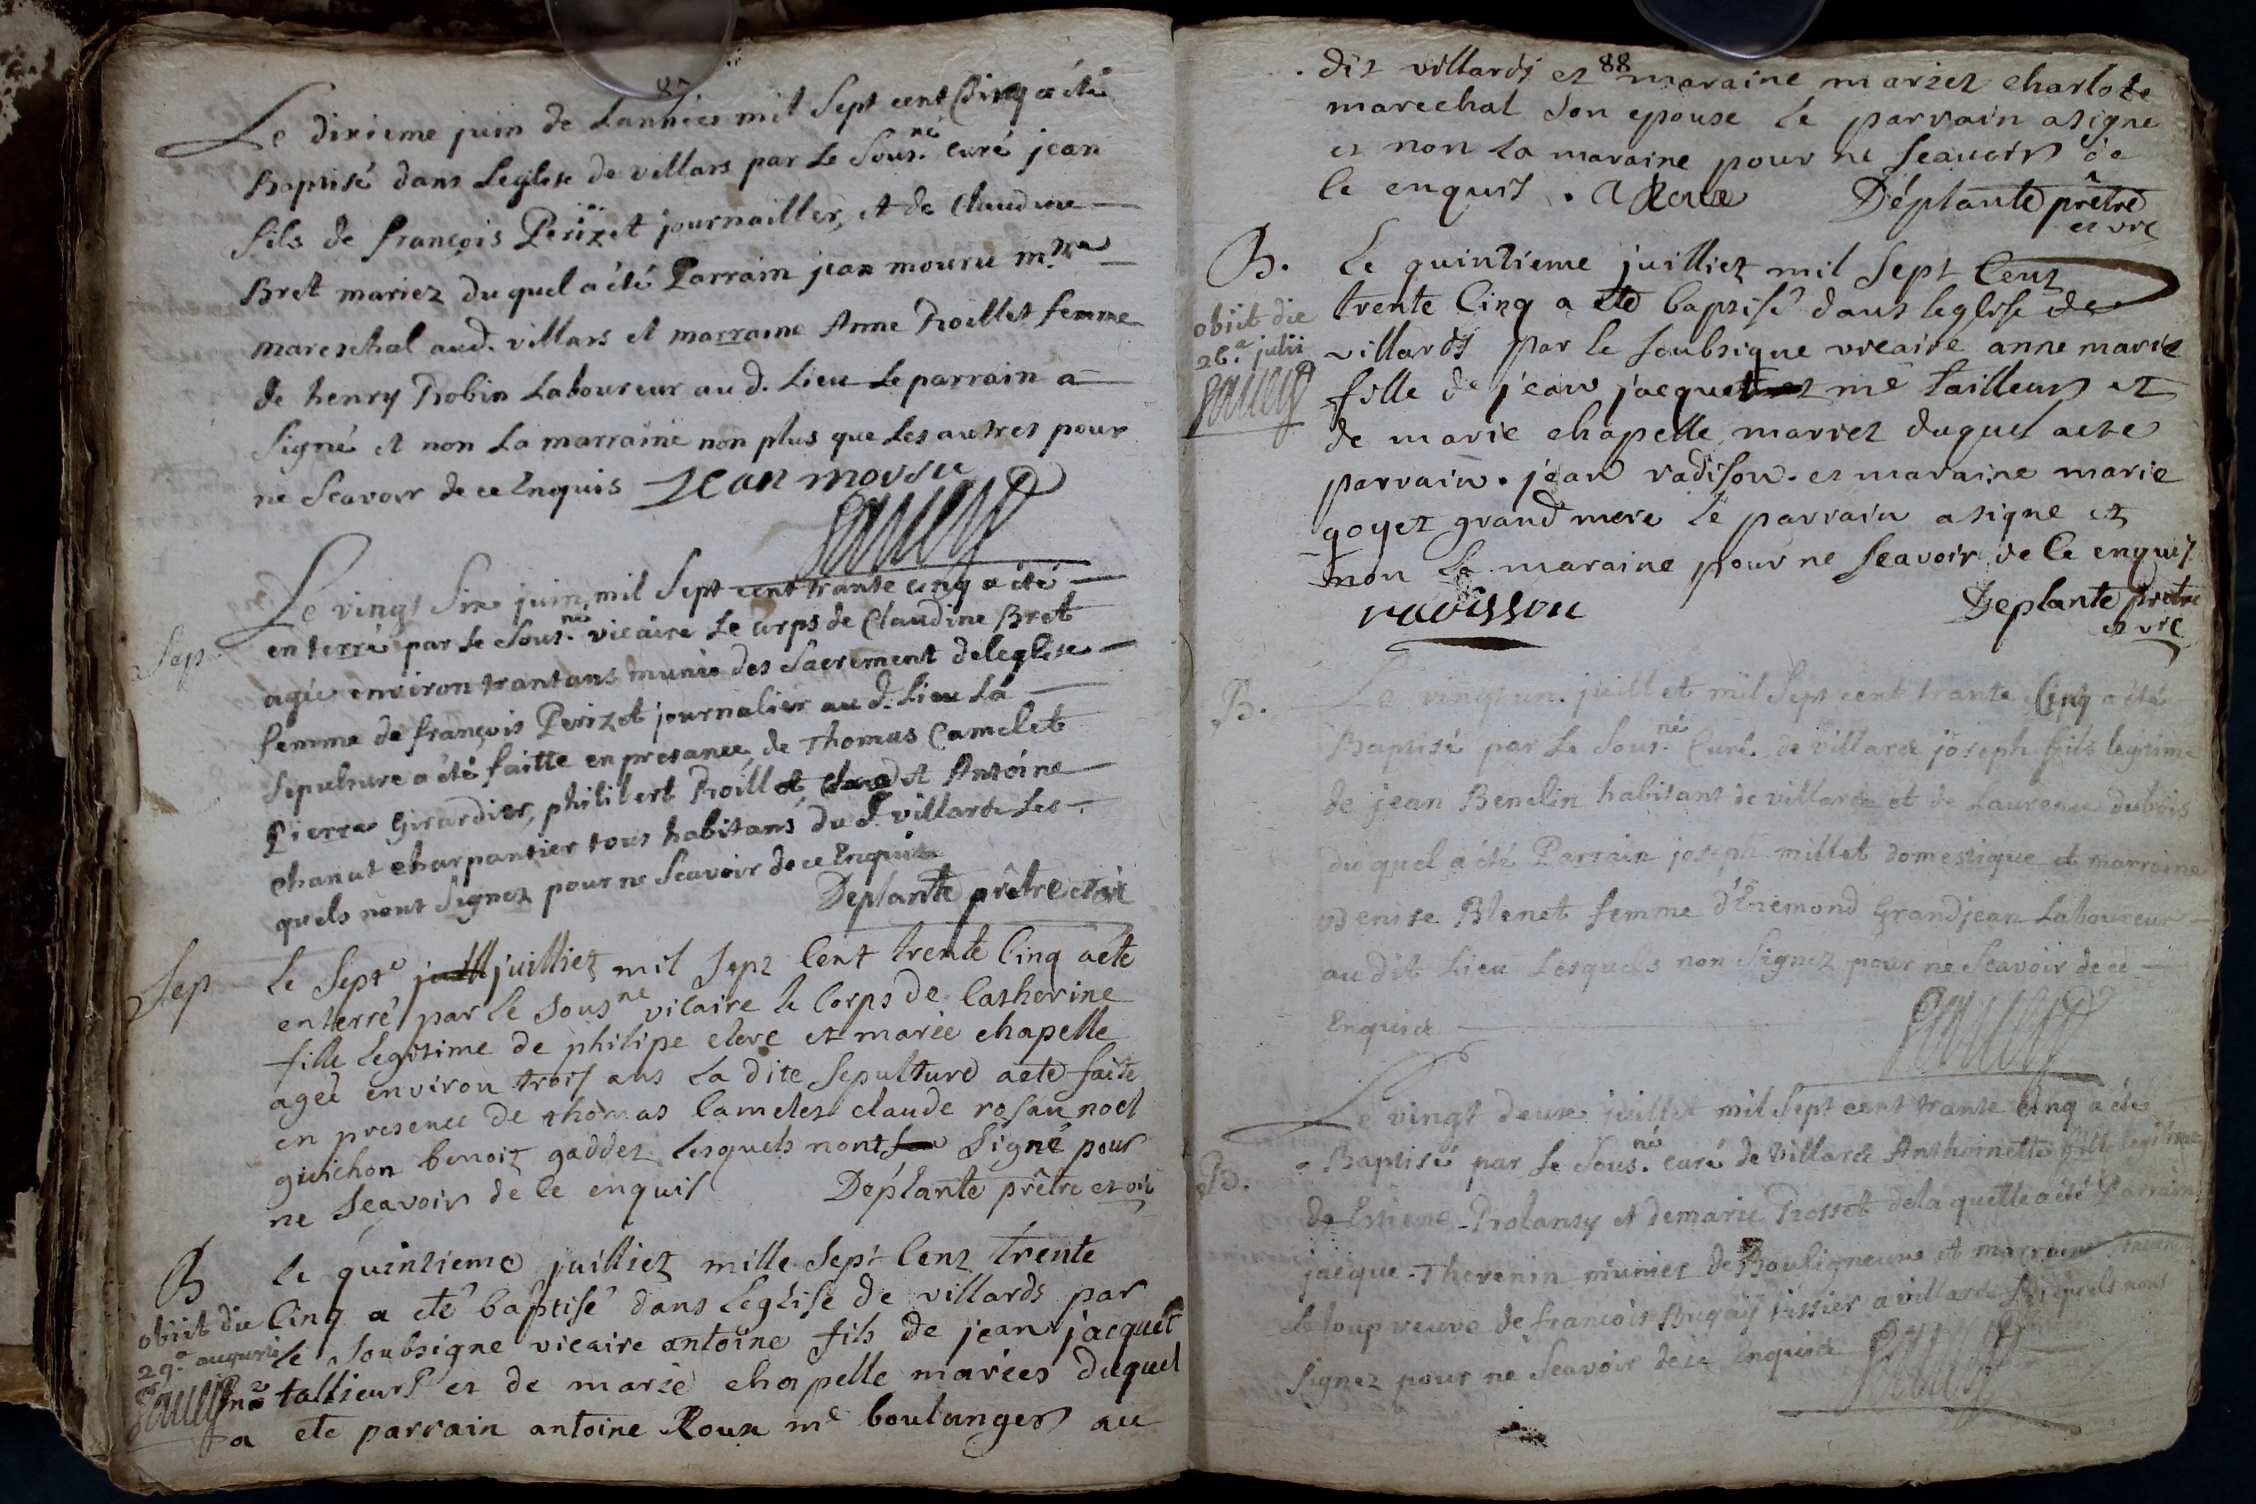 87
Le dixieme juin de Lannées mil Sept cent Cinq a été
Baptisé dans Leglise de villars par Le Sous.né curé jean
fils de françois Perizet journailler, et de Claudine
Bret mariez du quel a été Parrain jean mouru m.tre
mareschal aud. villars et marraine Anne Troillet femme
de henry Robin Laboureur au d. Lieu Le parrain a
Signé et non La marraine non plus que Les autres pour
ne Scavoir de ce Enquis Jean movru
Sep
Le vingt Six juin, mil Sept cent trante cinq a été
enterré par Le Sous.né vicaire Le corps de Claudine Bret
agée environ trant ans munie des Sacrement de leglise
femme de françois Perizet journalier au d. Lieu La
Sepulture a été faitte en presance, de Thomas Camelet
Pierre Girardier, philibert Troillet, et Antoine
Chanut charpantier tous habitans du d. villars Les
quels nont Signez pour ne Scavoir de ce Enquis
Deplante prêtre et vic
Sep
Le Septe juilliez mil Sept Cent trente Cinq a ete
enterré par le Sousne vicaire le Corps de Catherine
fille legitime de philipe clerc et marie chapelle
ageé environ trois ans La dite Sepulture a ete faite
en presence de thomas Camelet claude rosau noel
guichon benoit gaddez lesquels nont Signé pour
ne Seavoir de Ce enquis Déplante prêtre et vic
B
obiit die
29.a augusti
le quintieme juilliez mille Sept Cent trente
Cinq a eté baptisé dans Leglise de villards par
le Soubsigne vicaire antoine fils de jean jacquet
me tallieurs et de marie chapelle mariees duquel
a ete parrain antoine Roux me boulanger au
88
dit villards et maraine mariet charlote
marechal Son epouse le parrain a signe
et non la maraine pour ne Seavoir de
Ce enquis . A Roux Déplante prêtre
et vic
B.
obiit die
26.a julii
le quintieme juilliez mil Sept Cent
trente Cinq a ete baptisé dans leglise de
villards par le Soubsigne vicaire anne marie
fille de jean jacquet me tailleurs et
de marie chapelle, mariez duquel a ete
parrain . jean radison . et maraine marie
goyet grand mere le parrain a signe et
non la maraine pour ne Seavoir de Ce enquis
radisson Deplante prêtre
et vic
B.
Le vingt un. juillet mil Sept cent trante Cinq a été
Baptisé par Le Sous.né Curé de villard joseph fils legitime
de jean Benelin habitant de villard et de Laureau dubois
du quel a été Parrain joseph millet domestique et marraine
Denise Blenet femme d'Enemond Grandjean Laboureur
au dit Lieu Lesquels non Signez pour ne Scavoir de ce
Enquis
B.
Le vingt deux juillet mil Sept cent trante Cinq a été
Baptisé par Le Sous.né curé de Villard Anthoinette fille legitime
de Estiene Prolansy et de marie Trosset de la quelle a été Parrain
jacque Thevenin munier de Bouligneux et marraine
Loup veuve de francois Bugay tissier a villard Lesquels nont
Signez pour ne Scavoir de ce Enquis